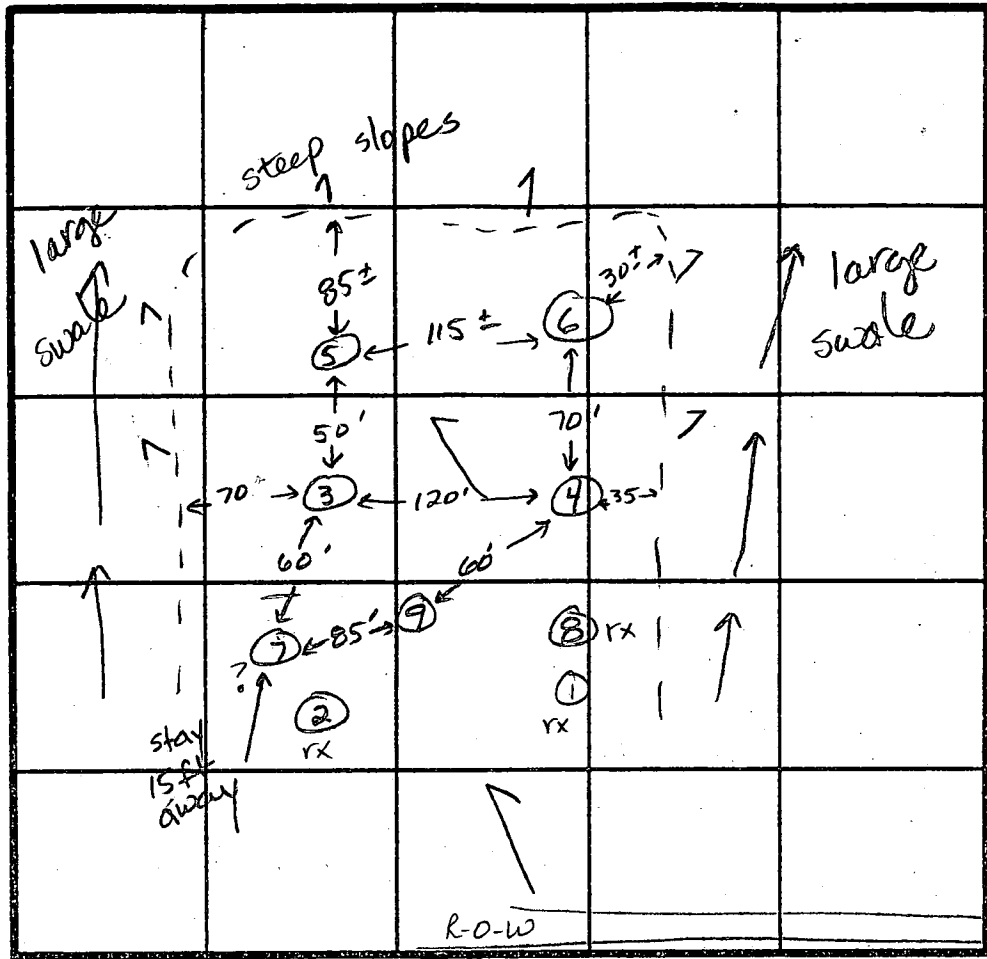 steep slopes
large
swale
85±
30±
large
swale
6
115±
5
50'
70'
70±
3
120'
4
35
60'
60'
9
7
85'
8
rx
?
1
2
rx
rx
stay
15 ft
away
R-O-W